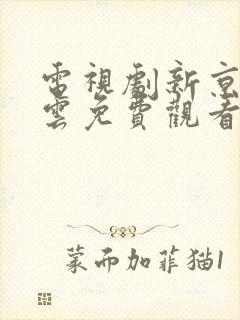 電視劇新京
雲免費觀看
蒙而加菲猫1